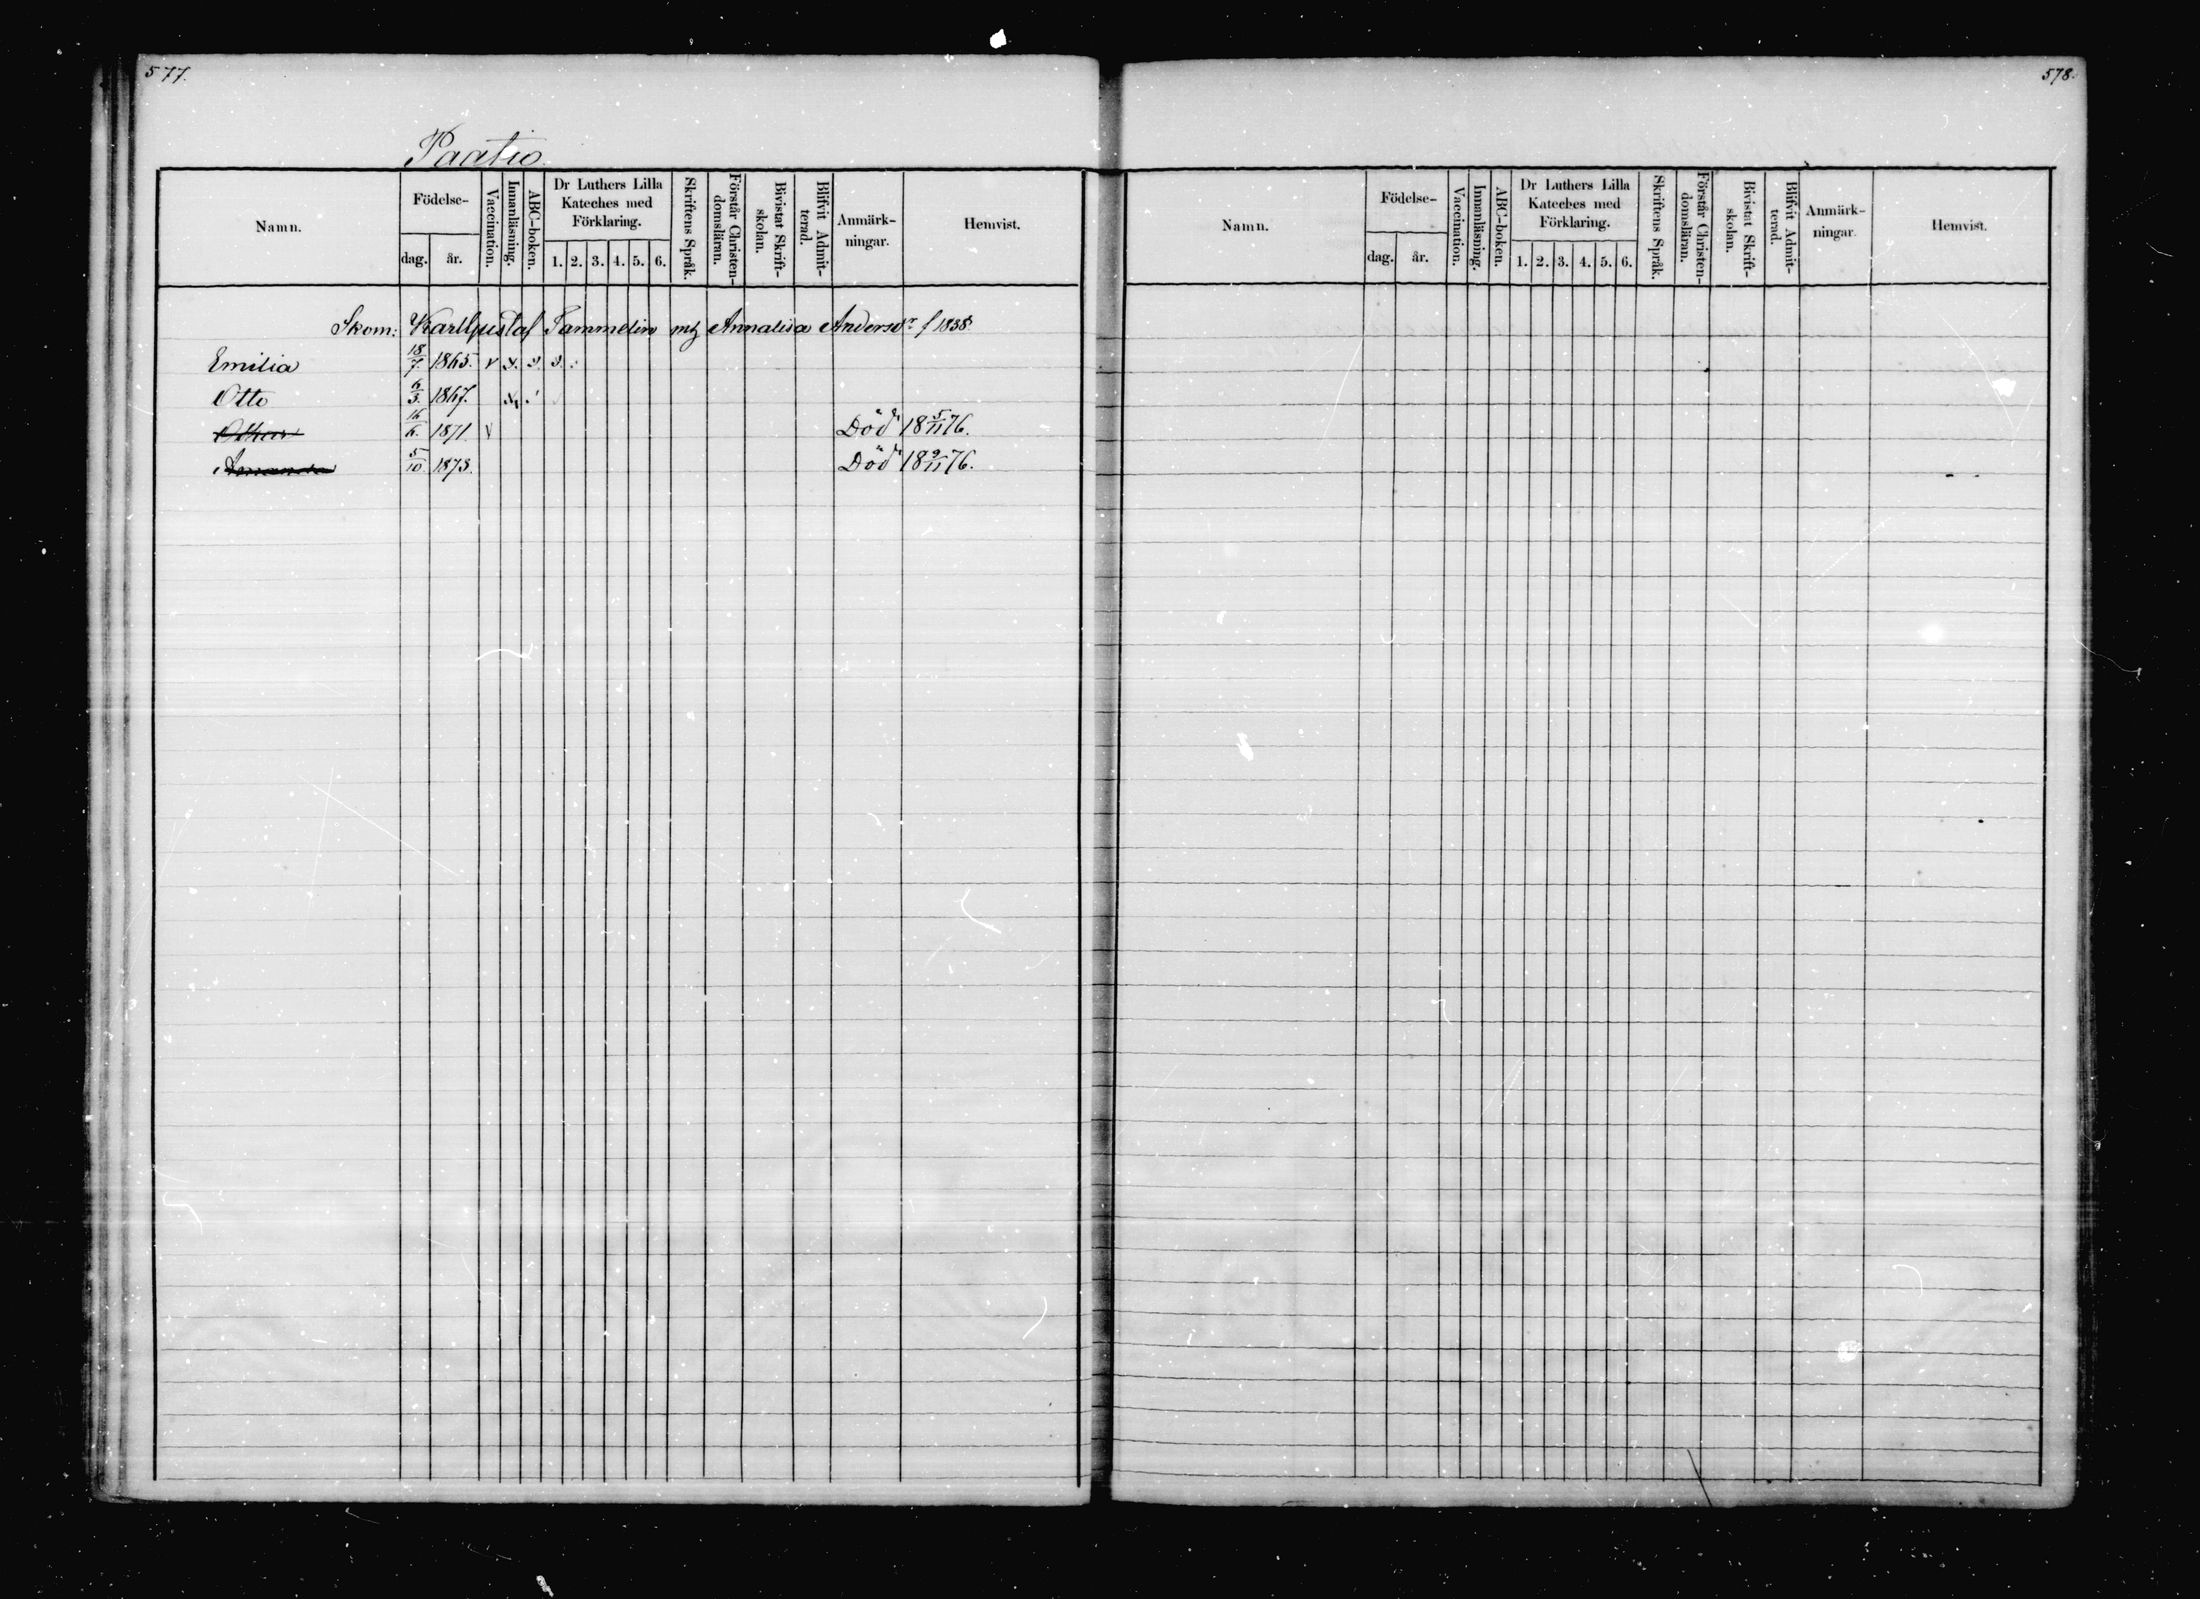 577.
Paatio.
Namn.
Födelse-
dag.
år.
Vaccination.
Innanläsning.
ABC-boken.
Dr Luthers Lilla
Kateches med
Förklaring.
1. 2. 3. 4. 5. 6.
Skriftens Språk.
Förstår Christen-
domsläran.
Bivistat Skrift-
skolan.
Blifvit Admit-
terad.
Anmärk-
ningar.
Hemvist.
Skom: Karl Gustaf Sammelin m Annalisa Anders f 1838
Emilia 18/7. 1865. v x. 2. 2.
Otto 6/3. 1867. x
Oskar 16/6. 1871. v Död 18 5/11 76.
Amanda 5/10 1873. Död 18 9/11 76.
578.
Namn.
Födelse-
dag.
år.
Vaccination.
Innanläsning.
ABC-boken.
Dr Luthers Lilla
Kateches med
Förklaring.
1. 2. 3. 4. 5. 6.
Skriftens Språk.
Förstår Christen-
domsläran.
Bivistat Skrift-
skolan.
Blifvit Admit-
terad.
Anmärk-
ningar.
Hemvist.